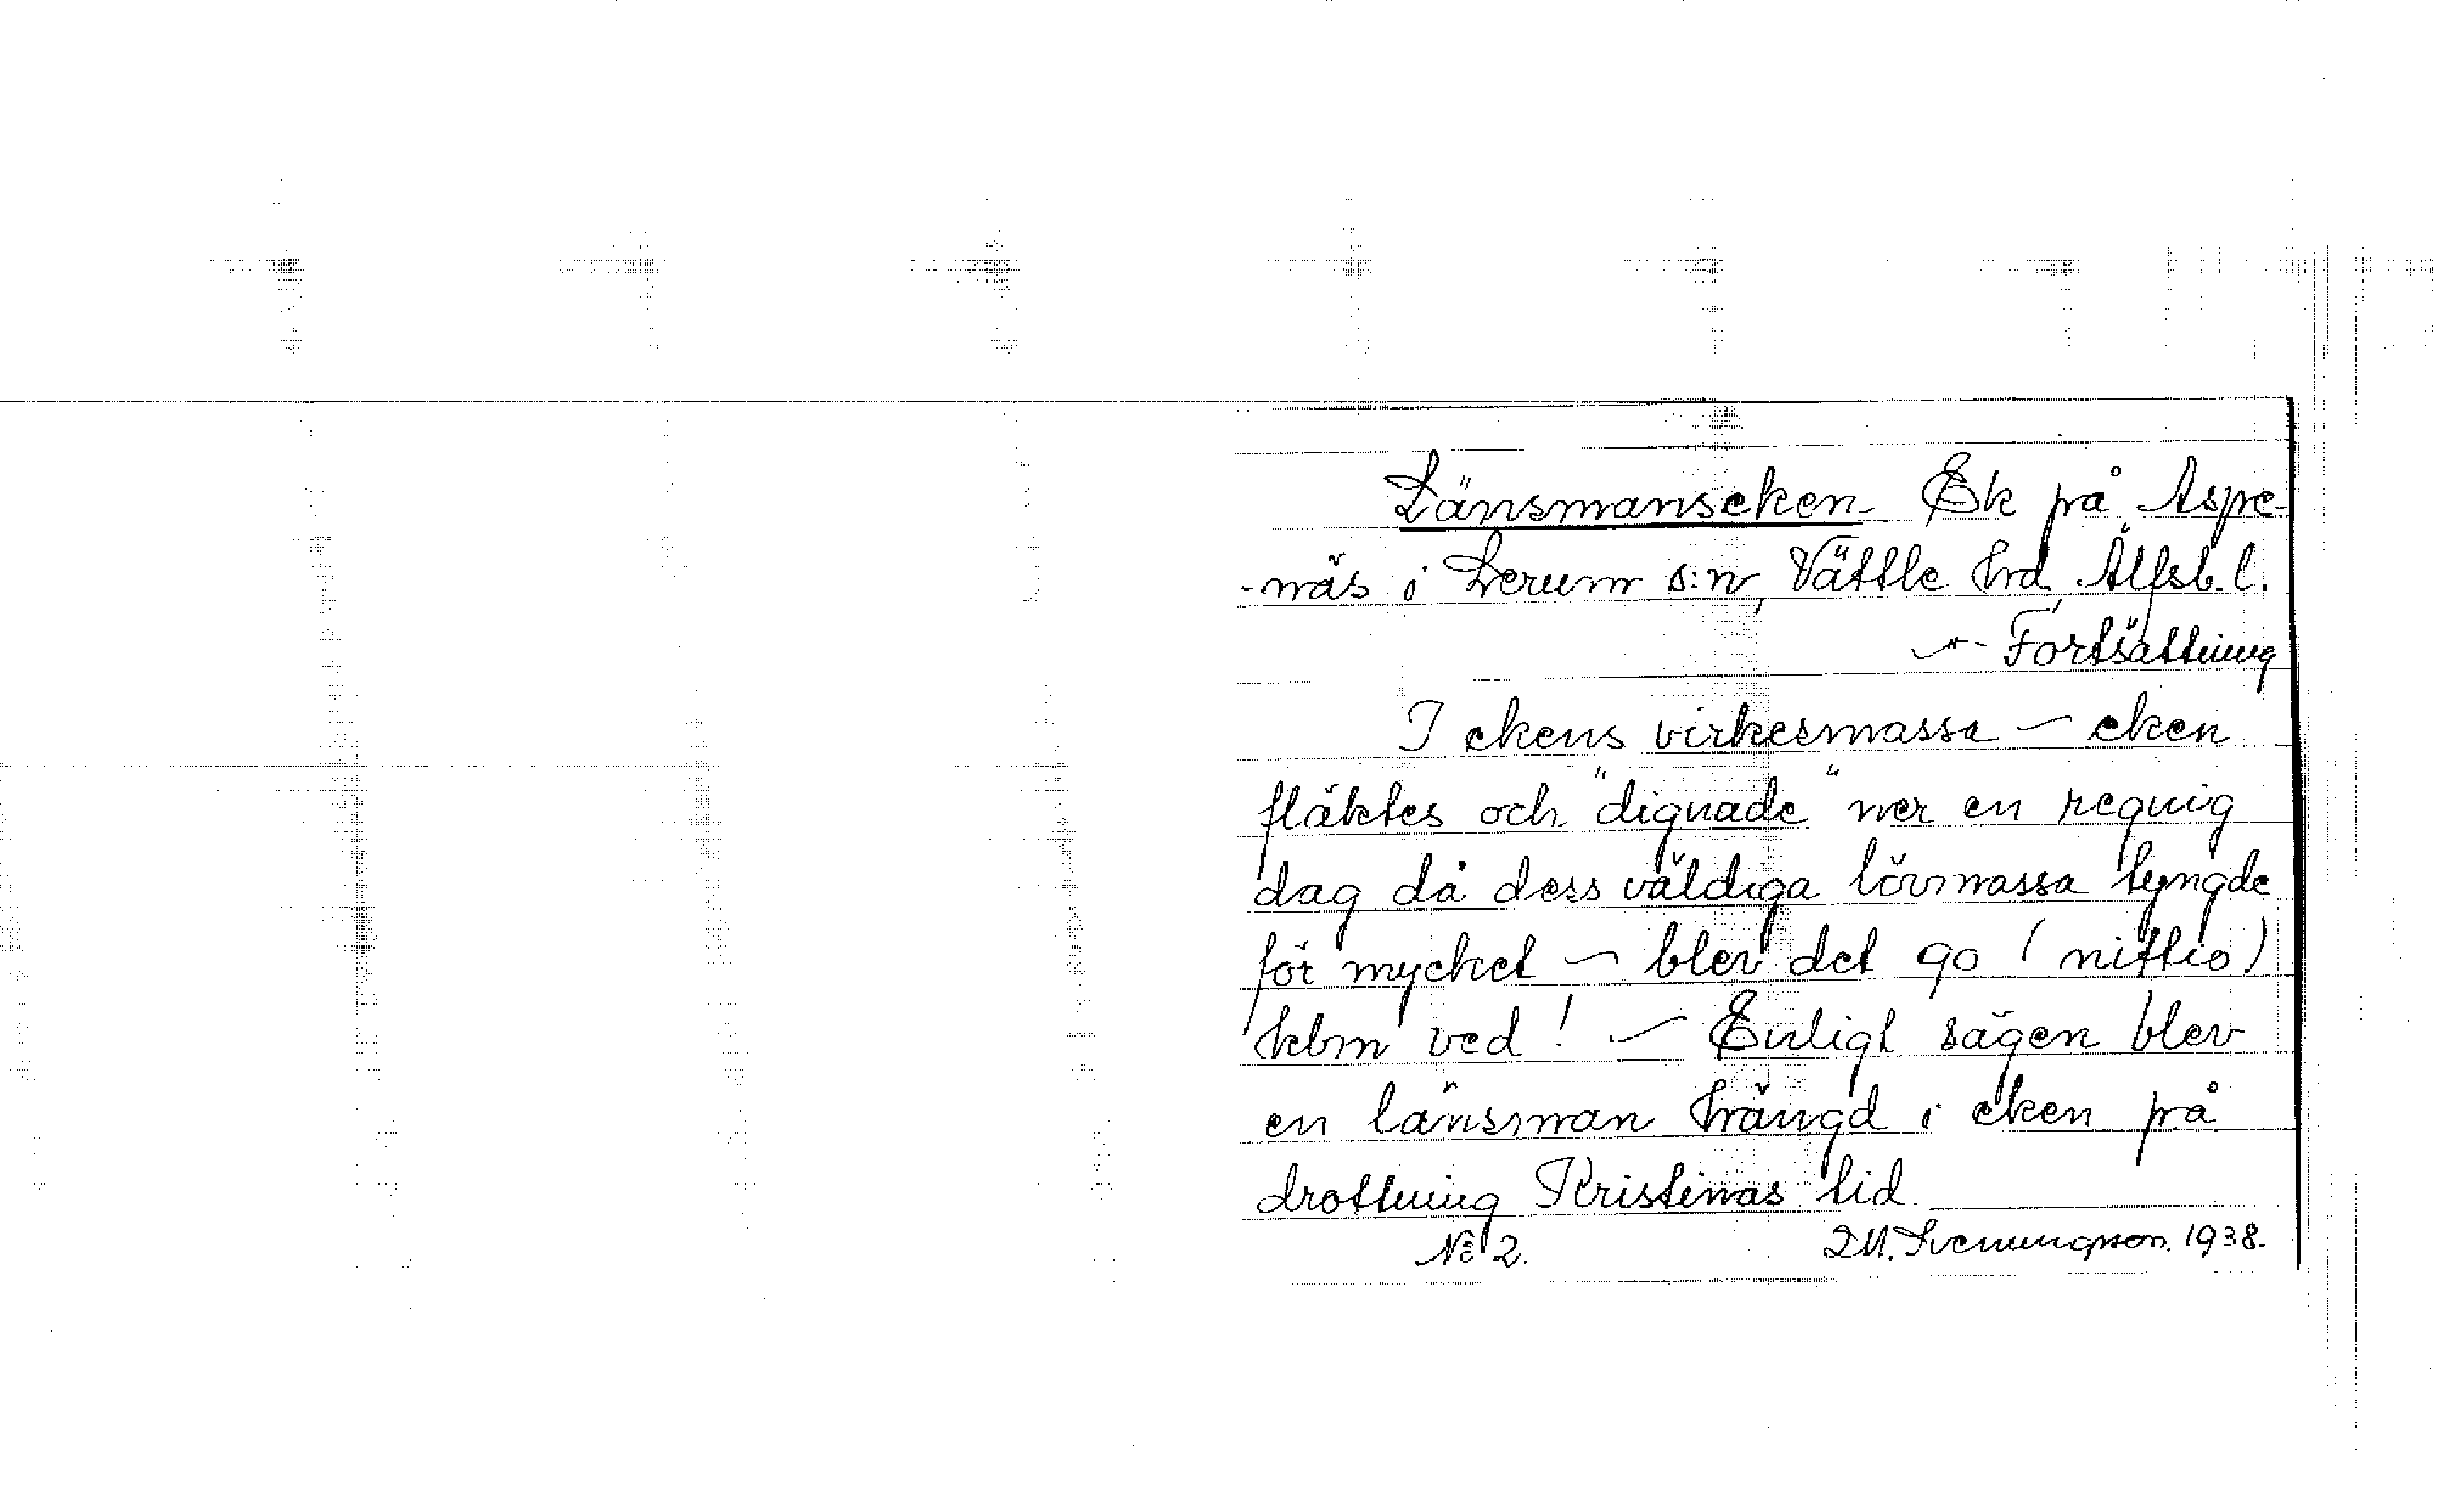 Länsmanseken Ek på Aspe-
-näs i Lerum s:n, Vättle hrd, Älfsb. l.
— Fortsättning
I ekens virkesmassa — eken
fläktes och "dignade" ner en regnig
dag då dess väldiga lövmassa tyngde
för mycket — blev det 90 (nittio)
kbm ved! — Enligt sägen blev
en länsman hängd i eken på
drottning Kristinas tid.
No 2. 1938.